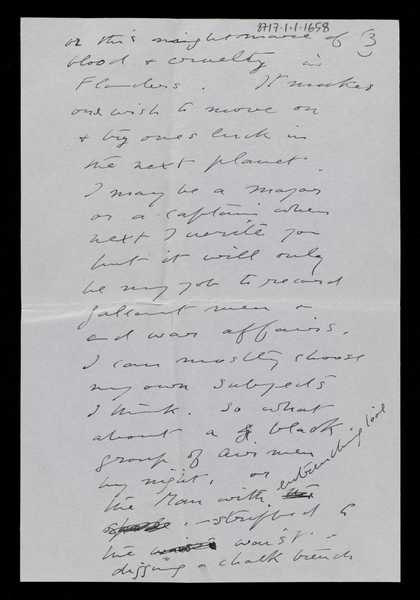 8717.1.1.1658
or this nightmare of (3)
blood & cruelty in
Flanders. It makes
one wish to move on
& try ones luck in
the next planet.
I may be a major
or a captain when
next I write you
but it will only
be my job to record
gallant men &
and war affairs.
I can mostly choose
my own subjects
I think. So what
about a black
group of air men
by night, or
the Man with entrenching tool
stripped to
the waist -
digging a chalk trench